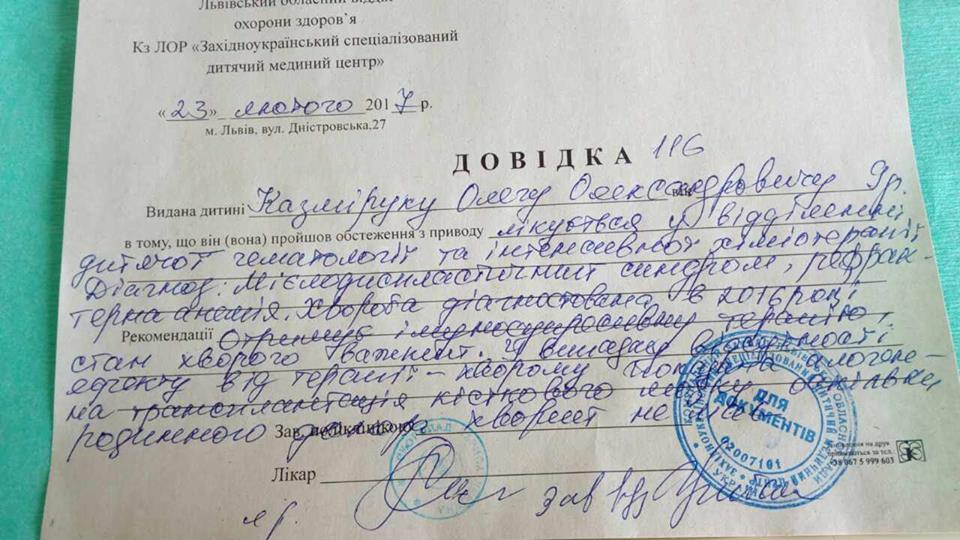 Львівський обласний відділ
охорони здоров`я
Кз ЛОР «Західноукраїнський спеціалізований
дитячий мединий центр»
«23» лютого 2017 р.
м. Львів, вул. Дністровська,27
ДОВІДКА 116
Видана дитині Казміруку Олегу Олександровичу 9р.
в тому, що він (вона) пройшов обстеження з приводу лікується у відділенні
дитячої гематології та інтенсивної хіміотерапії
Діагноз: Мієлодиспластичний синдром, рефрак-
терна анемія. Хвороба діагностована в 2016 році
Рекомендації Отримує імуносупресивну терапію,
стан хворого важкий. У випадку відсутності
ефекту від терапії – хворому показана алогене-
на трансплантація кісткового мозку, оскільки
родинного донора хворий не має
Зав. поліклінікою
Лікар
зав
ДЛЯ
ДОКУМЕНТІВ
02007101
УКРАЇНА
+38 067 5 999 603